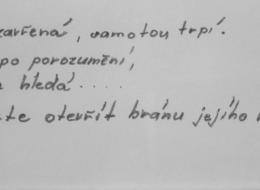 zavřená, samotou trpí.
po porozumění,
hledá ....
te otevřít bránu jejího